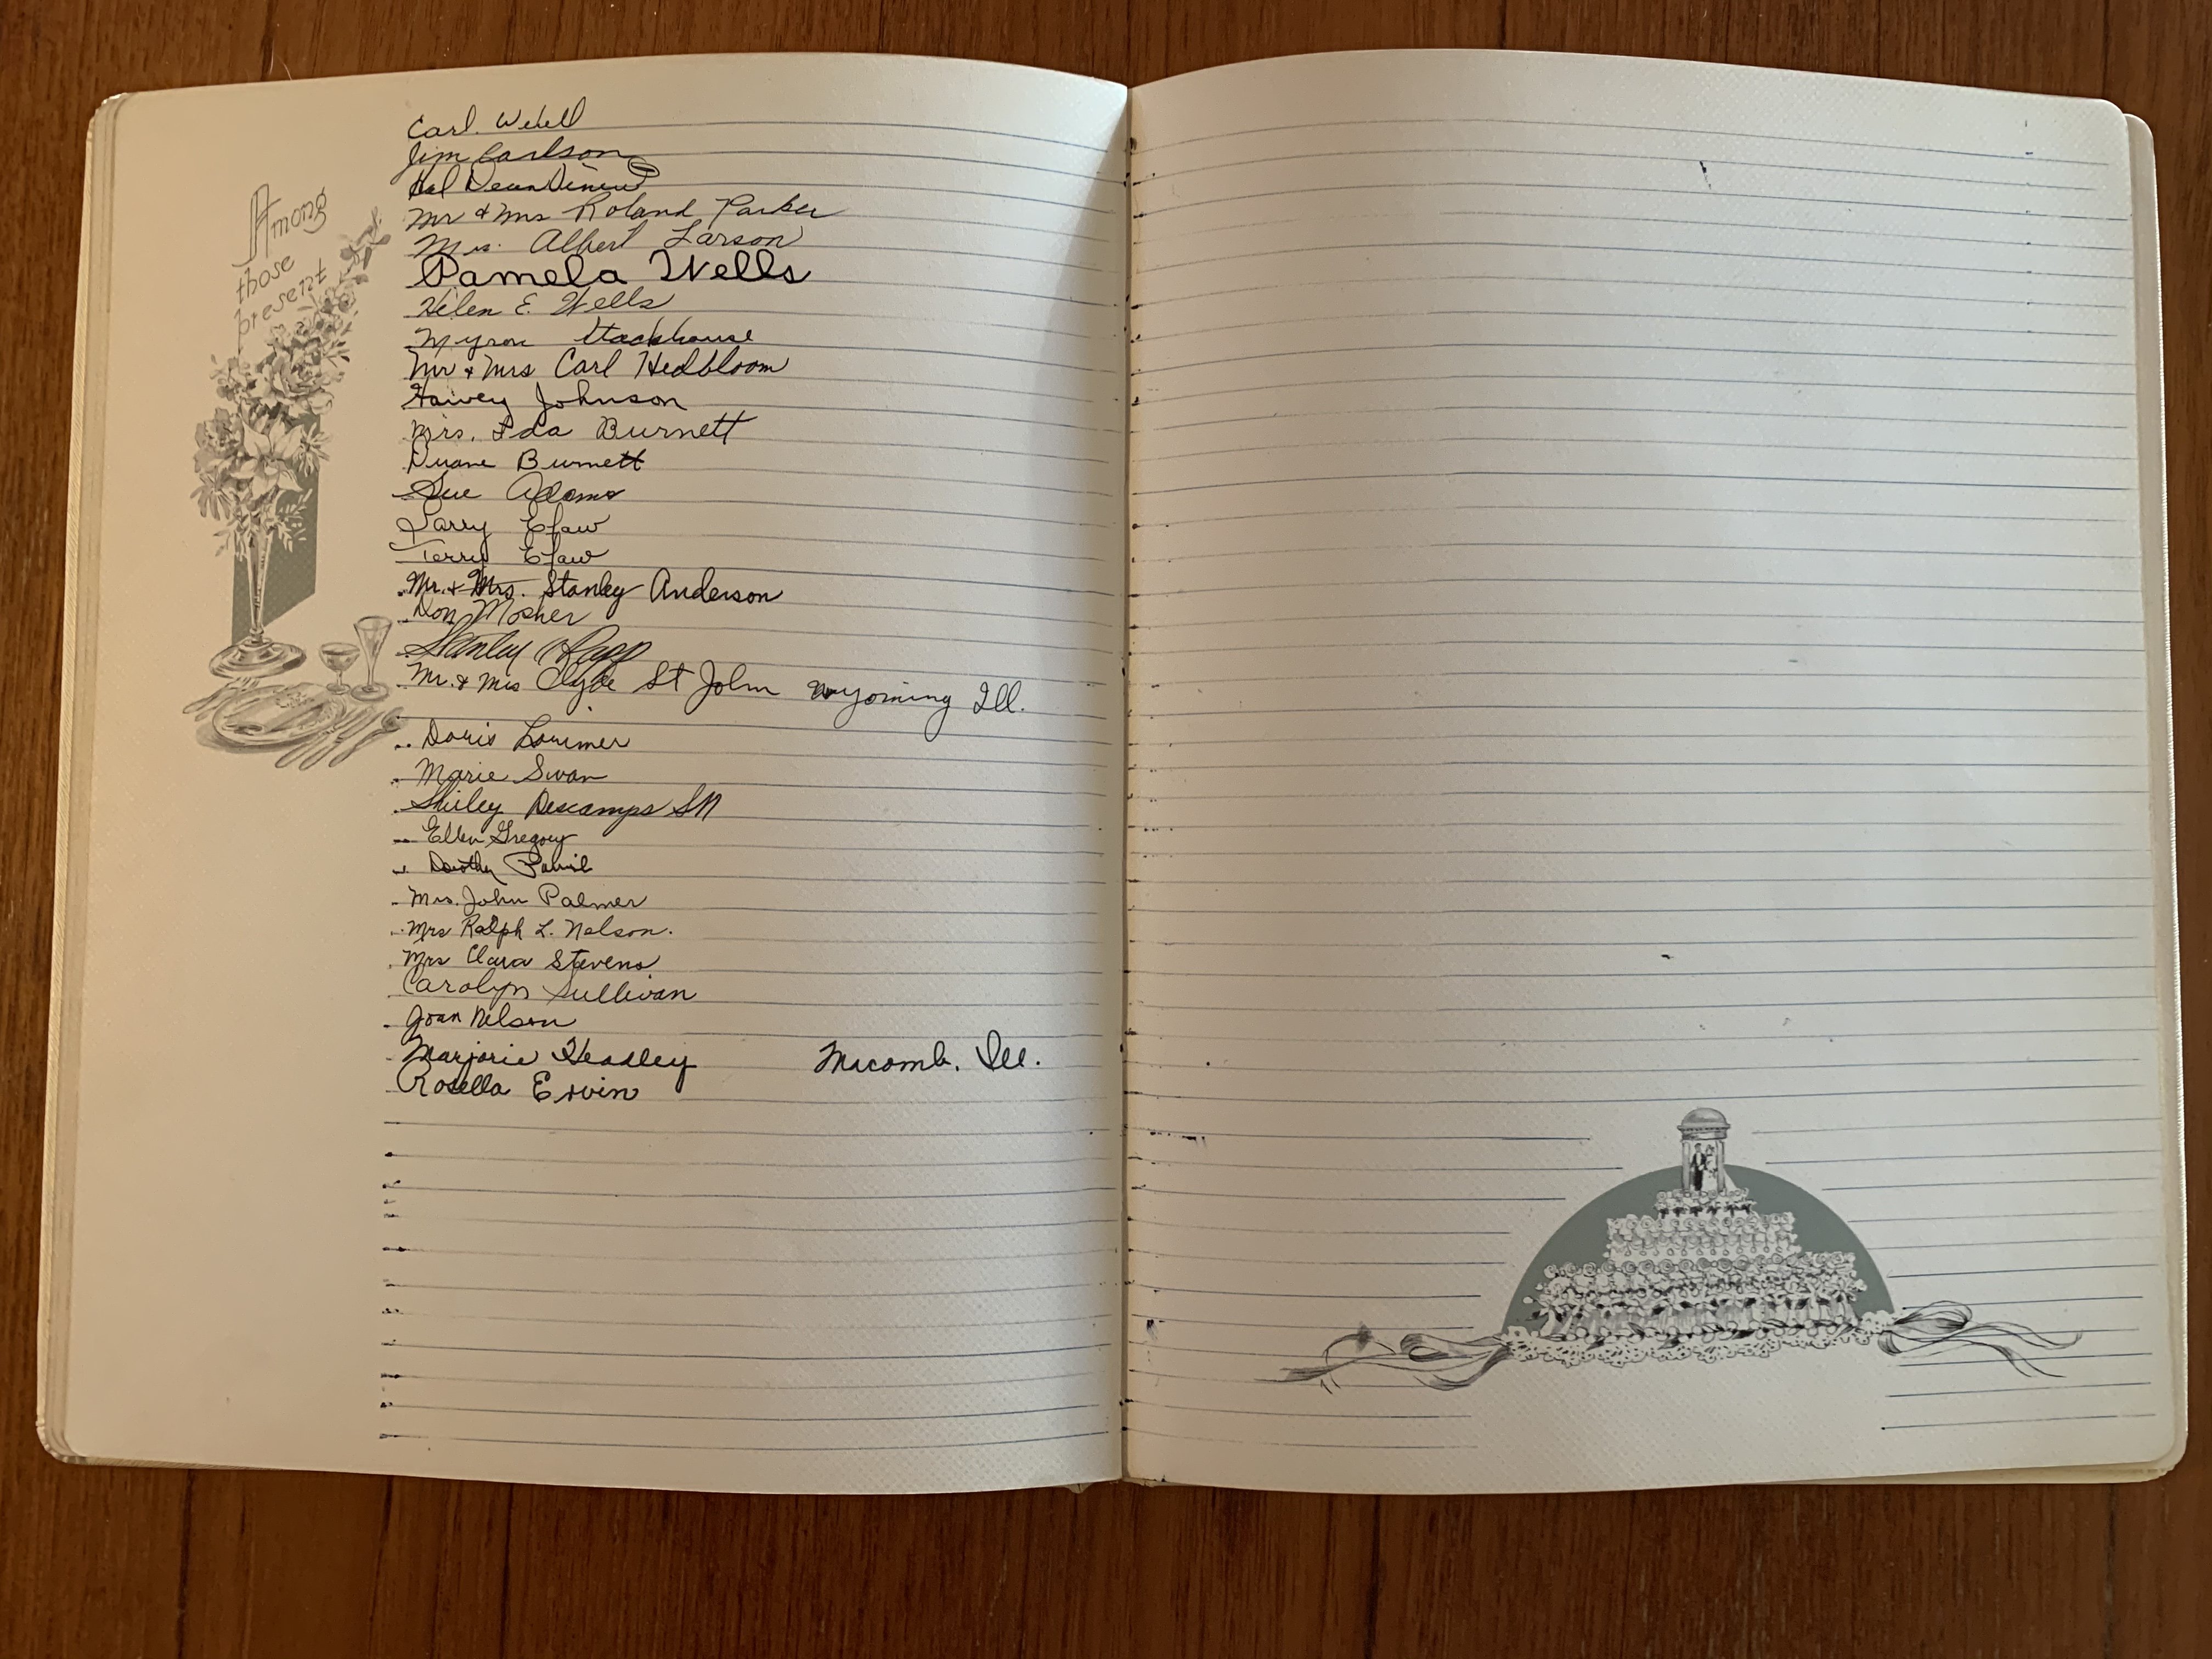 Among
those
present
Carl. Webell
Jim Carlson
Hal
Mr & Mrs Roland Parker
Mrs. Albert Larson
Pamela Wells
Helen E. Wells
Myron Stackhouse
Mr & Mrs Carl Hedbloom
Harvey Johnson
Mrs. Ida Burnett
Duane Burnett
Sue Adams
Larry Efaw
Terry Efaw
Mr. & Mrs. Stanley Anderson
Don Mosher
Stanley
Mr. & Mrs Clyde St John Wyoming Ill.
Doris Lorimer
Marie Swan
Shirley Descamps SN
Ellen Gregory
Dorothy
Mrs. John Palmer
Mrs Ralph L. Nelson.
Mrs Clara Stevens
Carolyn Sullivan
Joan Nelson
Marjorie Headley Macomb, Ill.
Rosella Ervin